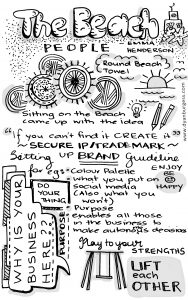 The Beach
PEOPLE
EMMA
HENDERSON
Round Beach
Towel
Sitting on the Beach
came up with the idea
"If you can't find it CREATE it"
~ SECURE IP/TRADEMARK ~
Setting up BRAND Guideline
for eg:
* Colour Palette
* what you put on
social media
(Also what you
won't)
* Purpose
* enables all those
in the business to
make autonomous decisions
ENJOY
BE
HAPPY
DO
YOUR
THING
WHY IS YOUR
BUSINESS
HERE???
PURPOSE
Play to your
STRENGTHS
LIFT
each
OTHER